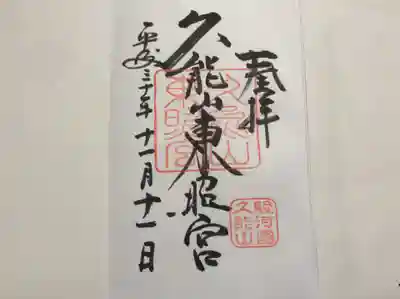 奉拝
久能山東照宮
平成三十年十一月十一日
久能山
東照宮
駿河国
久能山